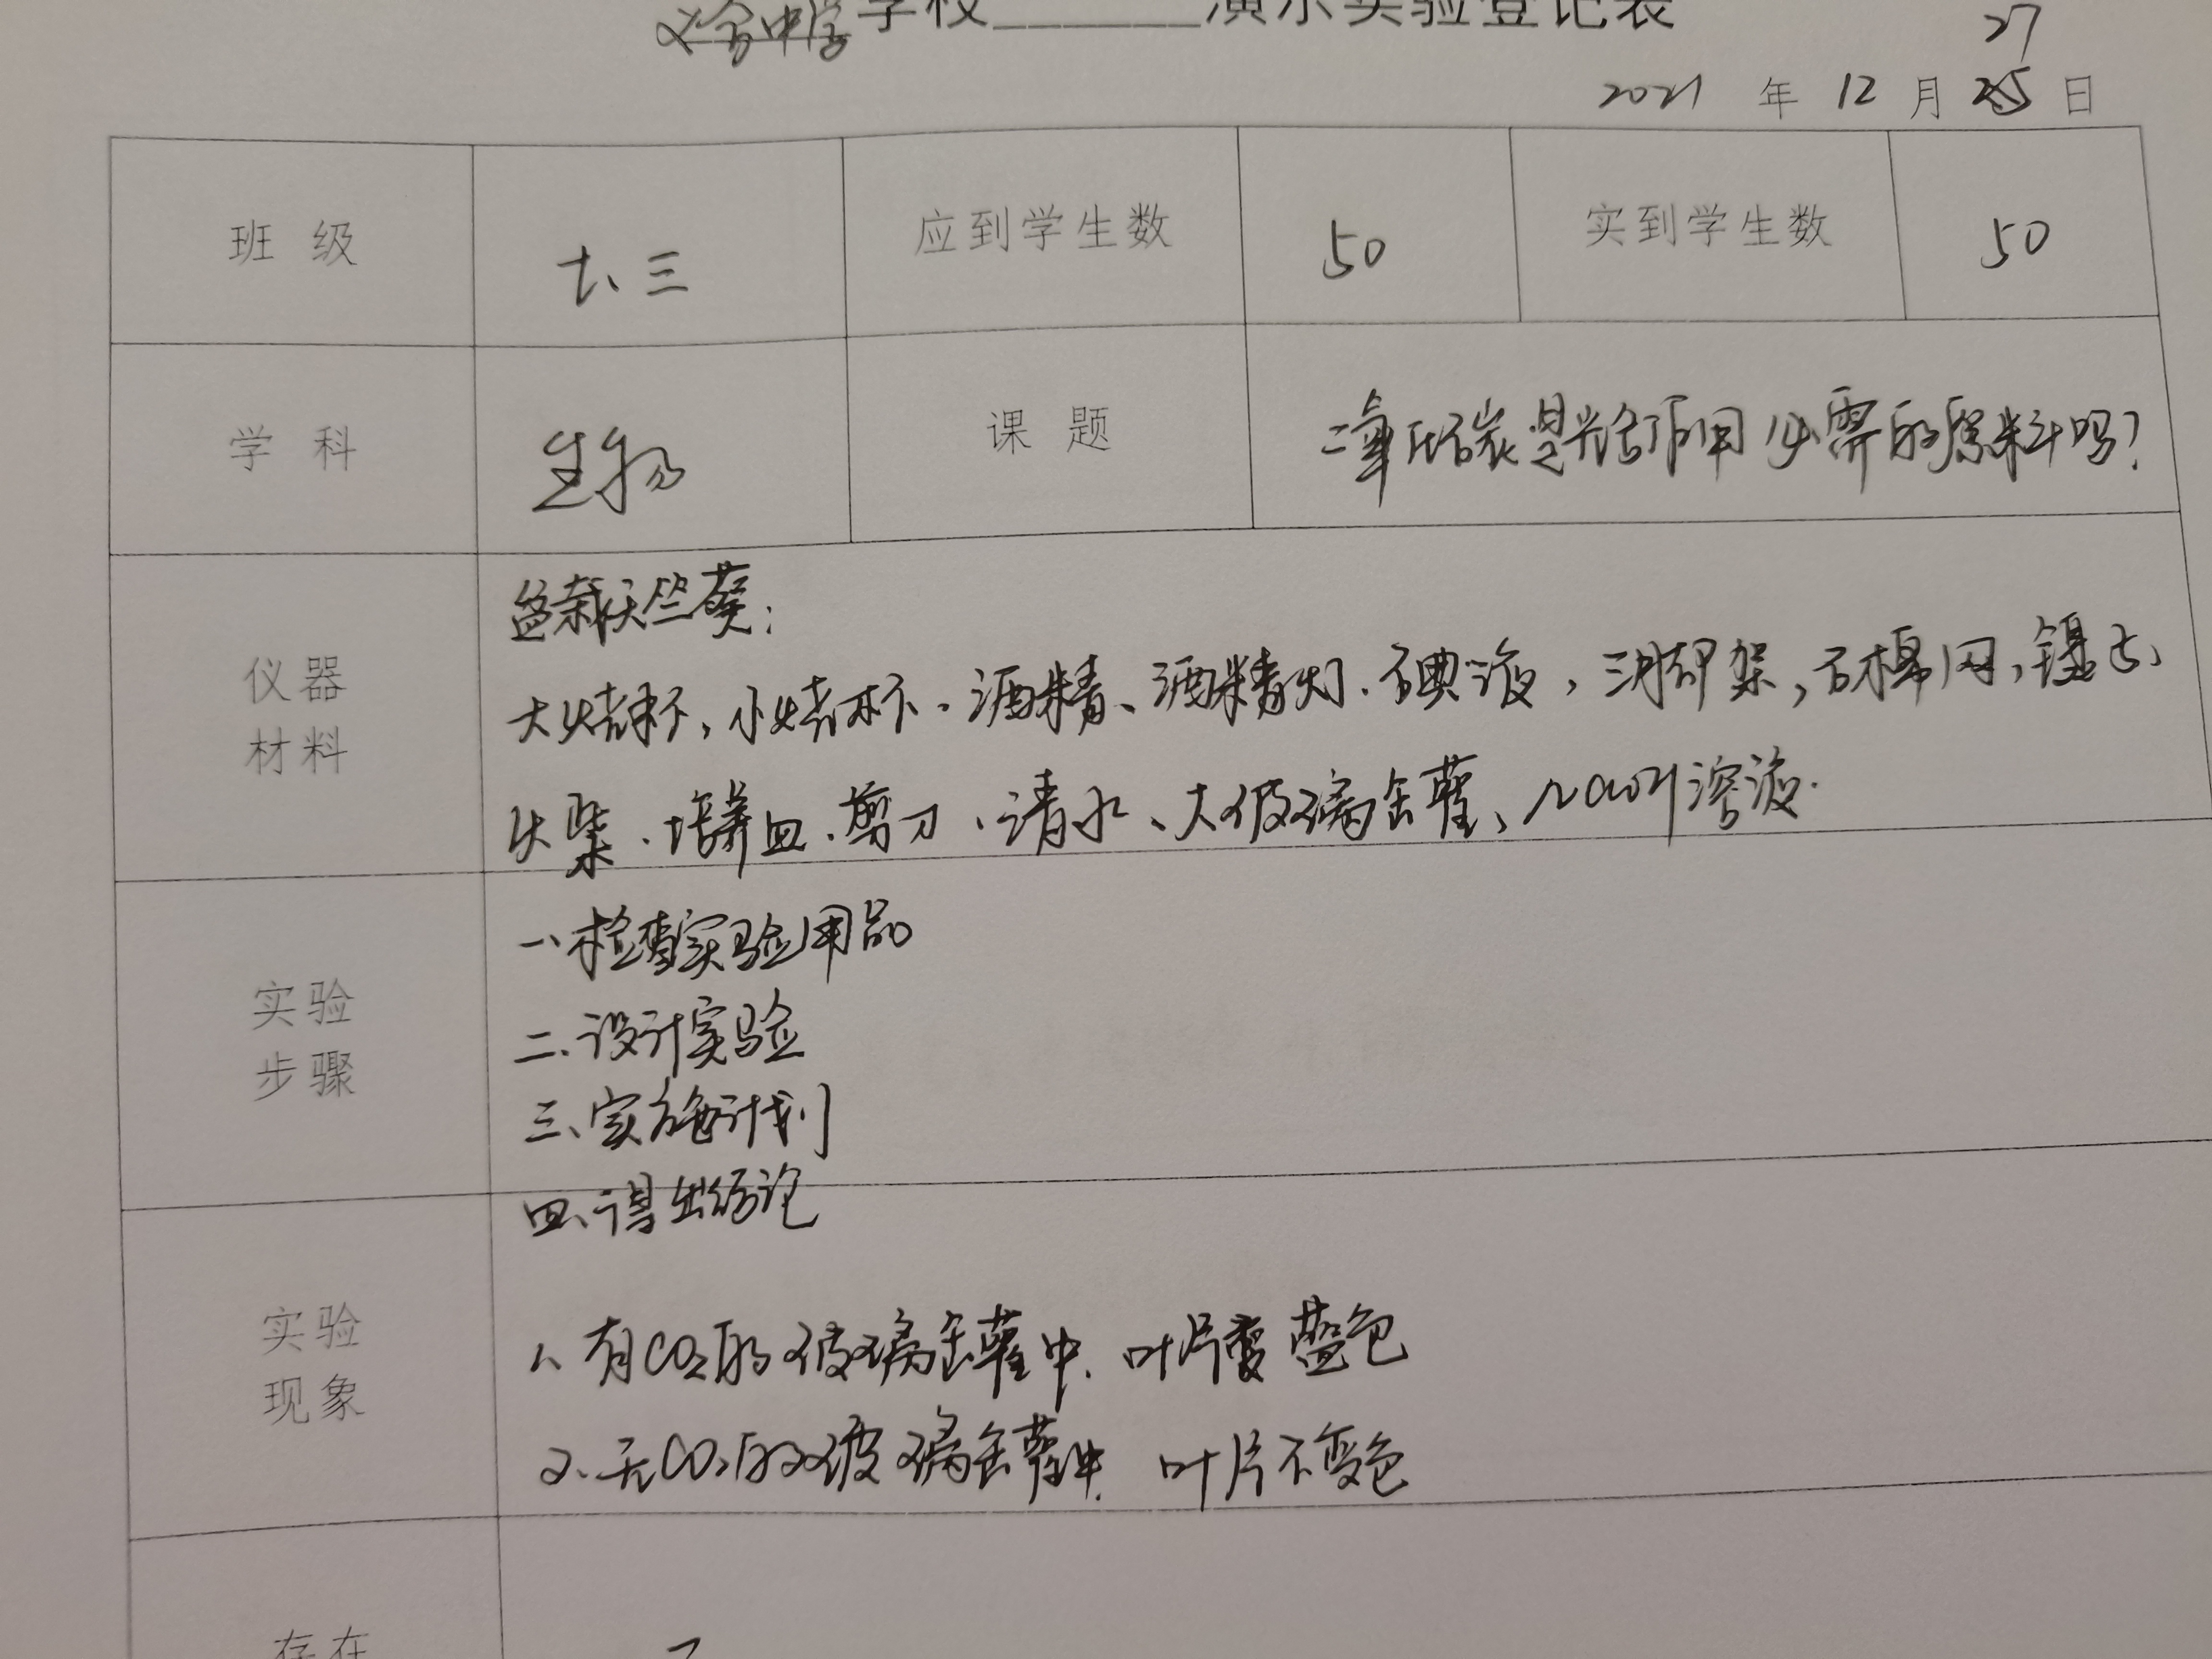 中学学校______演示实验登记表
27
2021 年 12 月 25 日
班 级 七、三 应到学生数 50 实到学生数 50
学 科 生物 课 题 二氧化碳是光合作用必需的原料吗?
仪器
材料
盆栽天竺葵;
大烧杯,小烧杯、酒精、酒精灯、碘液,三脚架,石棉网,镊子、
火柴、培养皿、剪刀、清水、大玻璃缸罐、NaOH溶液.
实验
步骤
一、检查实验用品
二、设计实验
三、实施计划
四、得出结论
实验
现象
1、有CO2的玻璃缸罐中,叶片变蓝色
2、无CO2的玻璃缸罐中,叶片不变色
存在